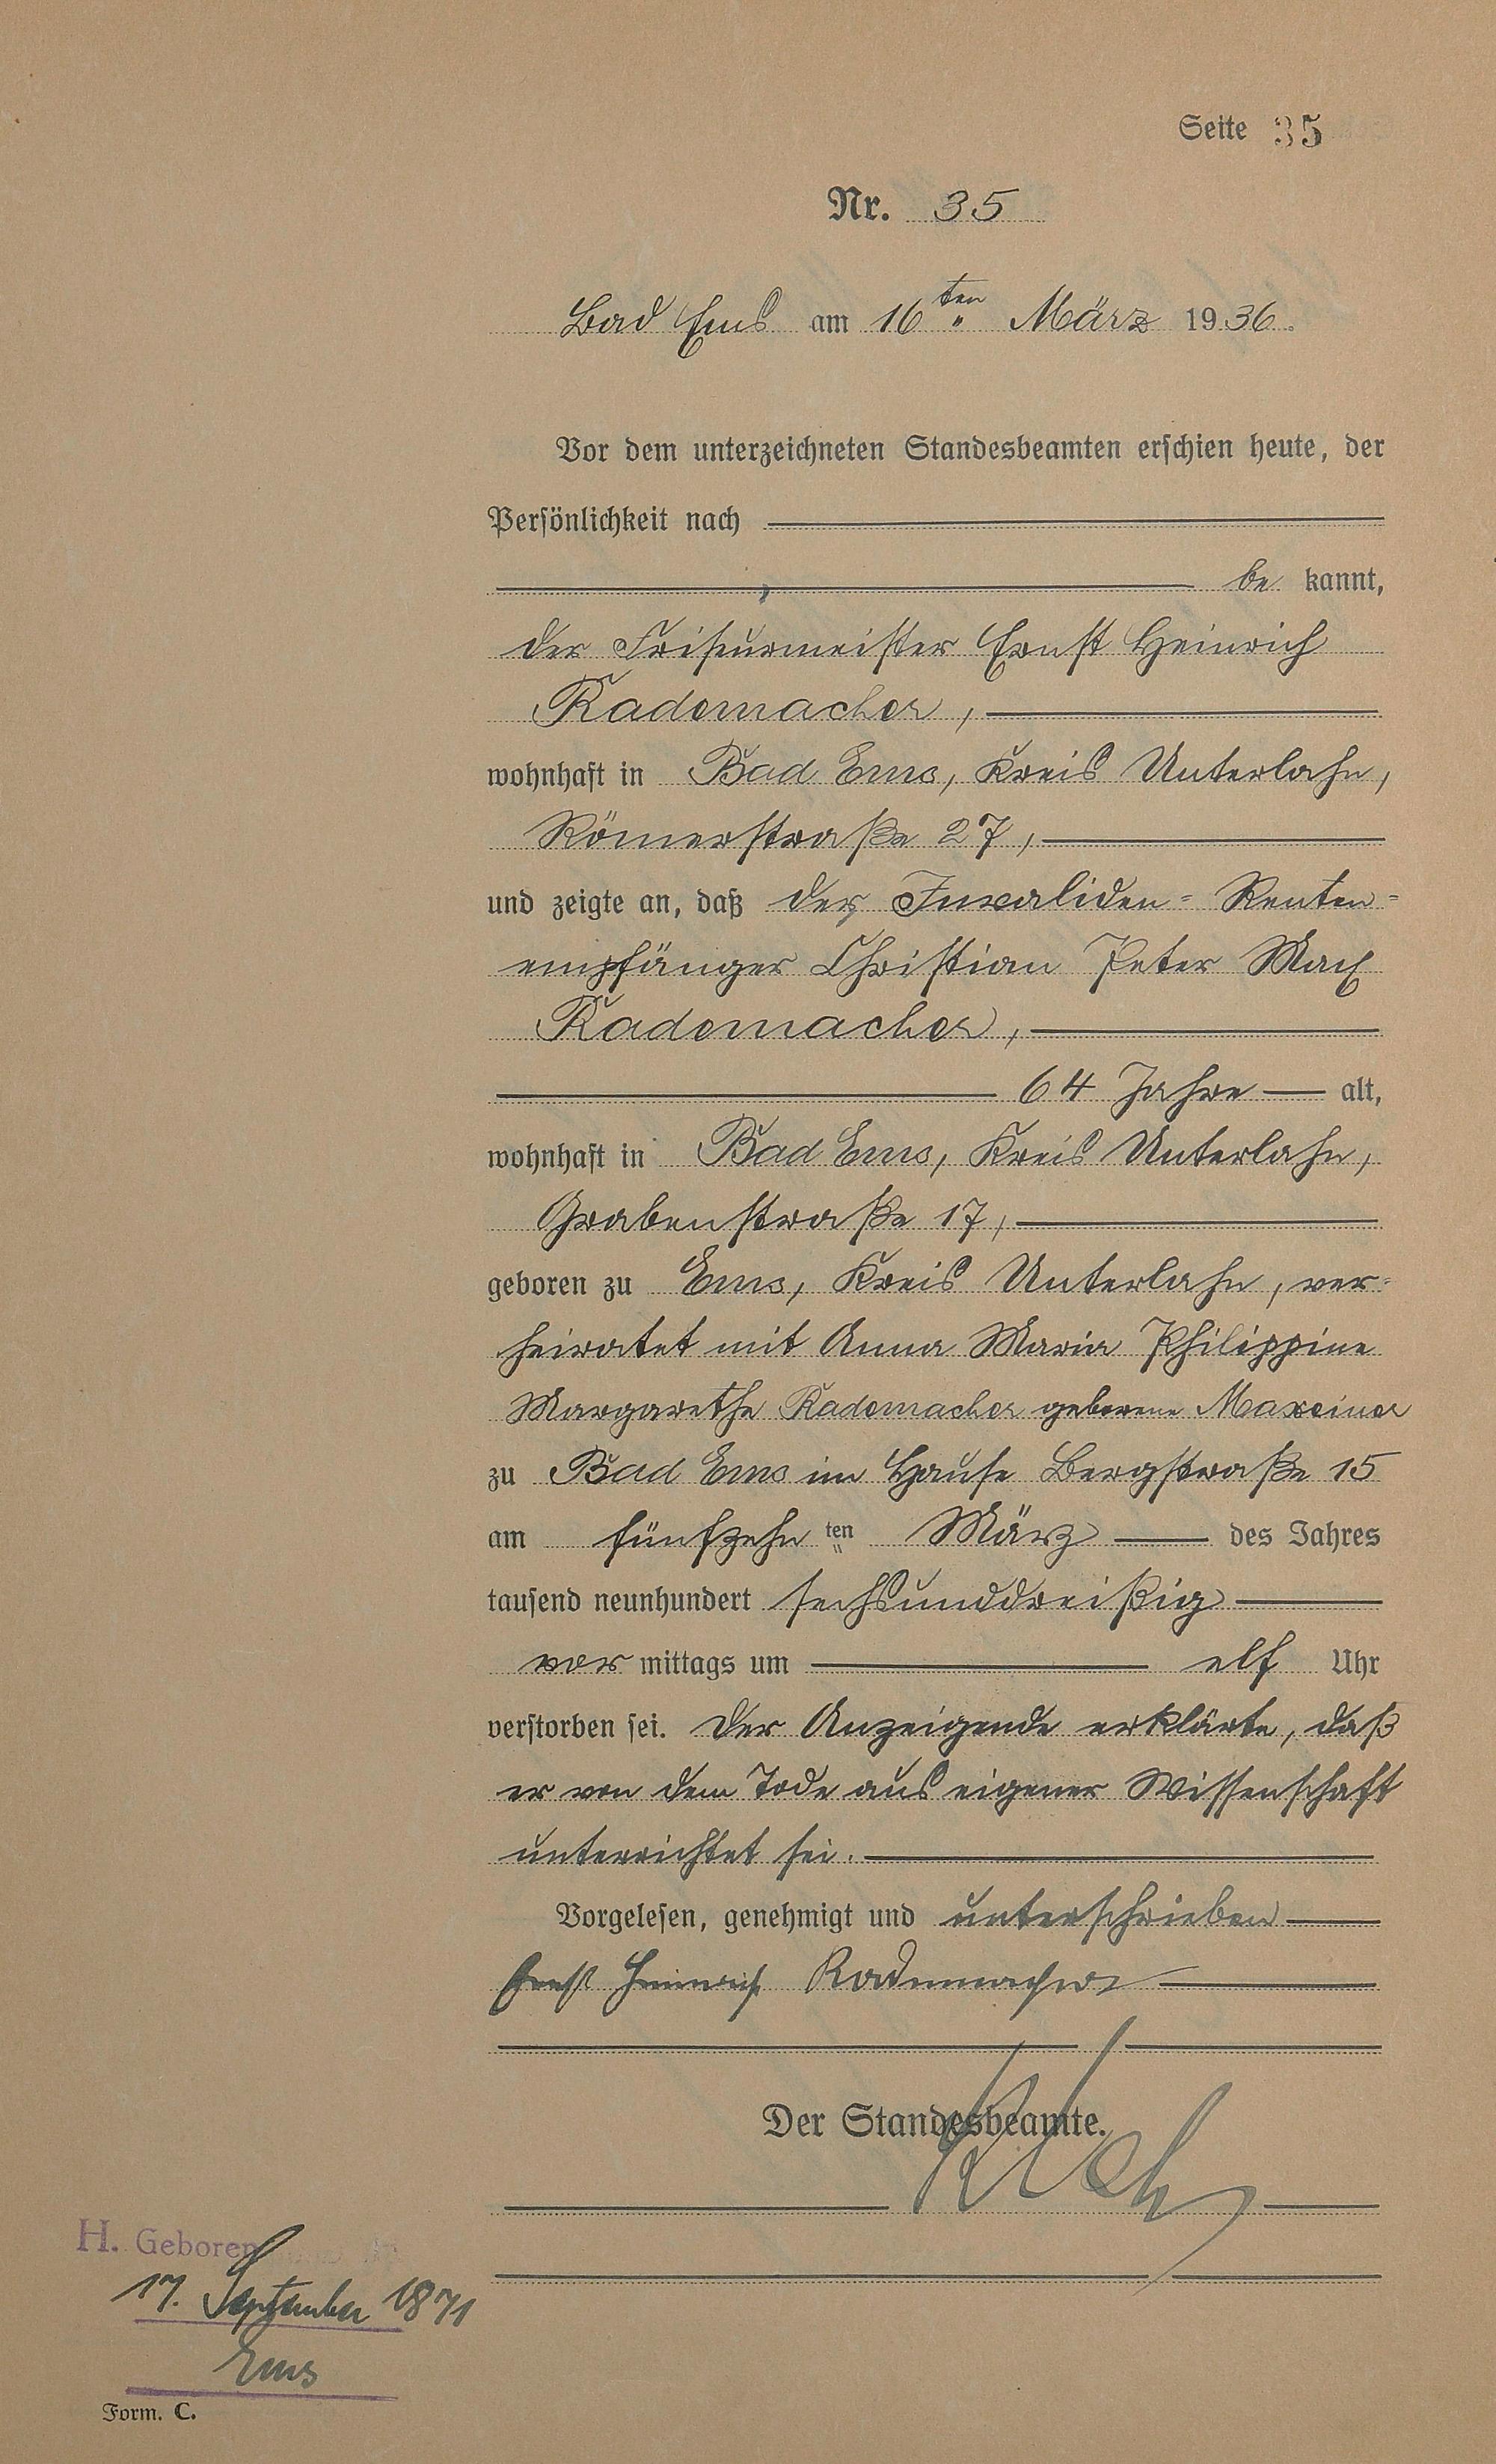 Seite 35
Nr. 35
Bad Ems am 16ten März 1936.
Vor dem unterzeichneten Standesbeamten erschien heute, der
Persönlichkeit nach
be kannt,
der Friseurmeister Ernst Heinrich
Rademacher,
wohnhaft in Bad Ems, Kreis Unterlahn,
Römerstraße 27,
und zeigte an, daß der Invaliden-Renten-
empfänger Christian Peter Max
Rademacher,
64 Jahre alt,
wohnhaft in Bad Ems, Kreis Unterlahn,
Grabenstraße 17,
geboren zu Ems, Kreis Unterlahn, ver-
heiratet mit Anna Maria Philippine
Margarethe Rademacher geborene Maxeiner
zu Bad Ems im Hause Bergstraße 15
am fünfzehn ten März des Jahres
tausend neunhundert sechsunddreißig
vor mittags um elf Uhr
verstorben sei. Der Anzeigende erklärte, daß
er von dem Tode aus eigener Wissenschaft
unterrichtet sei.
Vorgelesen, genehmigt und unterschrieben
Ernst Heinrich Rademacher
Der Standesbeamte.
H. Geboren
17. September 1871
Ems
Form. C.